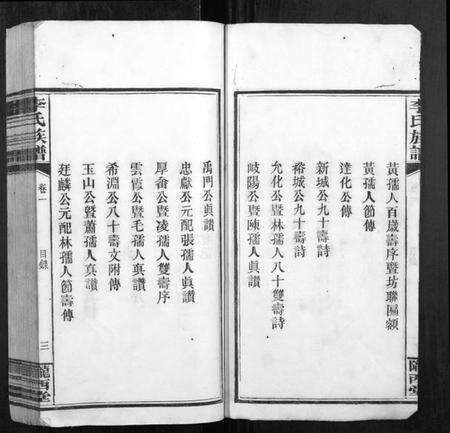 李氏族譜
黃孺人百歲壽序暨坊聯匾額
黃孺人節傳
達化公傳
新城公九十壽詩
裕城公九十壽詩
允化公暨林孺人八十雙壽詩
岐陽公暨陳孺人眞讚
隴西堂
禹門公眞讚
忠獻公元配張孺人眞讚
犀畬公暨凌孺人雙壽序
雲霞公暨毛孺人眞讚
希淵公八十壽文附傳
玉山公暨蕭孺人眞讚
廷麟公元配林孺人節壽傳
李氏族譜
卷一
目錄
三
隴西堂